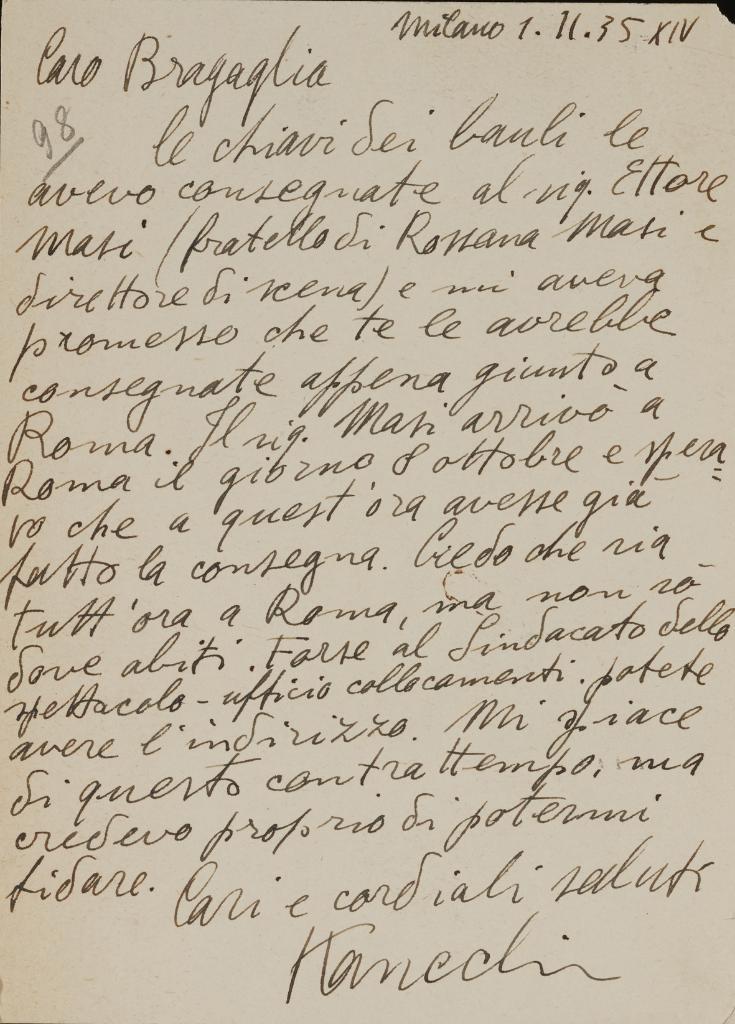 Milano 1.11.35 XIV
Caro Bragaglia
98
le chiavi dei bauli le
avevo consegnate al sig. Ettore
Masi (fratello di Rossana Masi e
direttore di scena) e mi aveva
promesso che te le avrebbe
consegnate appena giunto a
Roma. Il sig. Masi arrivò a
Roma il giorno 8 ottobre e spera=
vo che a quest'ora avesse già
fatto la consegna. Credo che sia
tutt'ora a Roma, ma non so
dove abiti. Forse al Sindacato dello
spettacolo - ufficio collocamenti. potete
avere l'indirizzo. Mi spiace
di questo contrattempo, ma
credevo proprio di potermi
fidare.
Cari e cordiali saluti